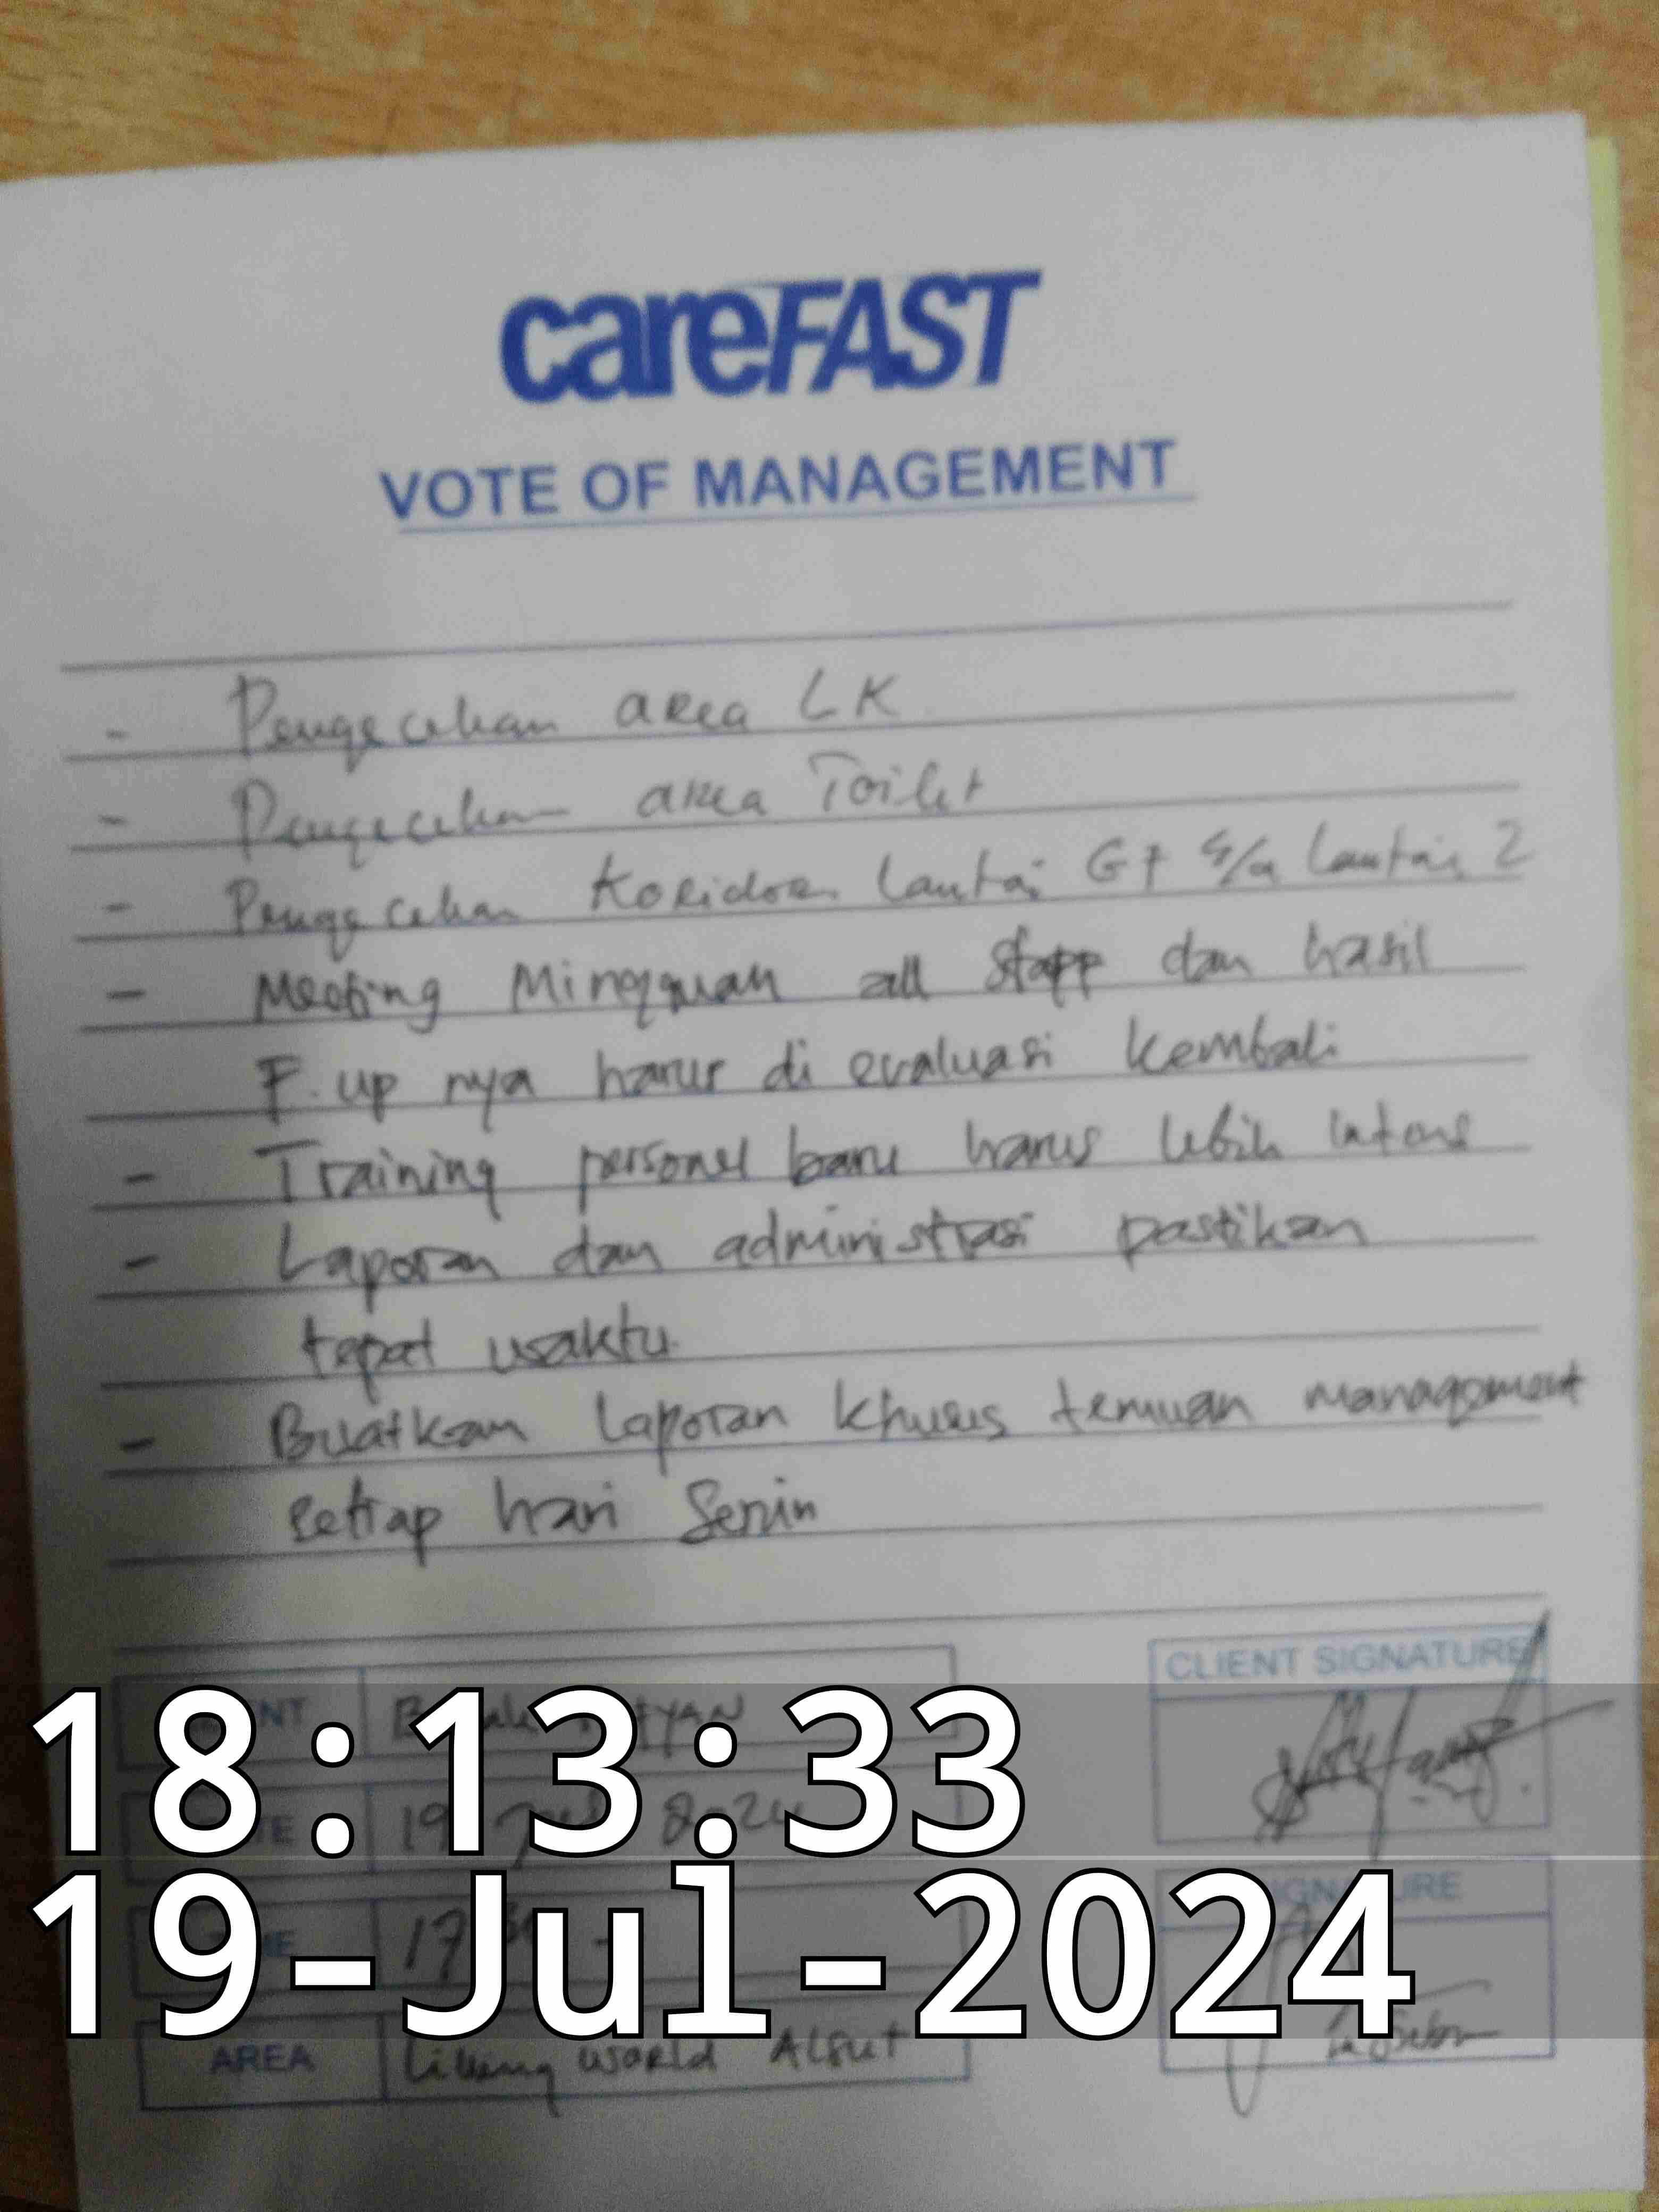 careFAST
VOTE OF MANAGEMENT
- Pengecekan area LK
- Pengecekan area Toilet
- Pengecekan Koridor Lantai GF s/d Lantai 2
- Meeting Mingguan all Staff dan hasil
F. up nya harus di evaluasi kembali
- Training personel baru harus lebih intens
- Laporan dan administrasi pastikan
tepat waktu
- Buatkan laporan khusus temuan management
setiap hari Senin
CLIENT SIGNATURE
18:13:33
19 2024
SIGNATURE
19-Jul-2024
17
AREA Living World ALSUT